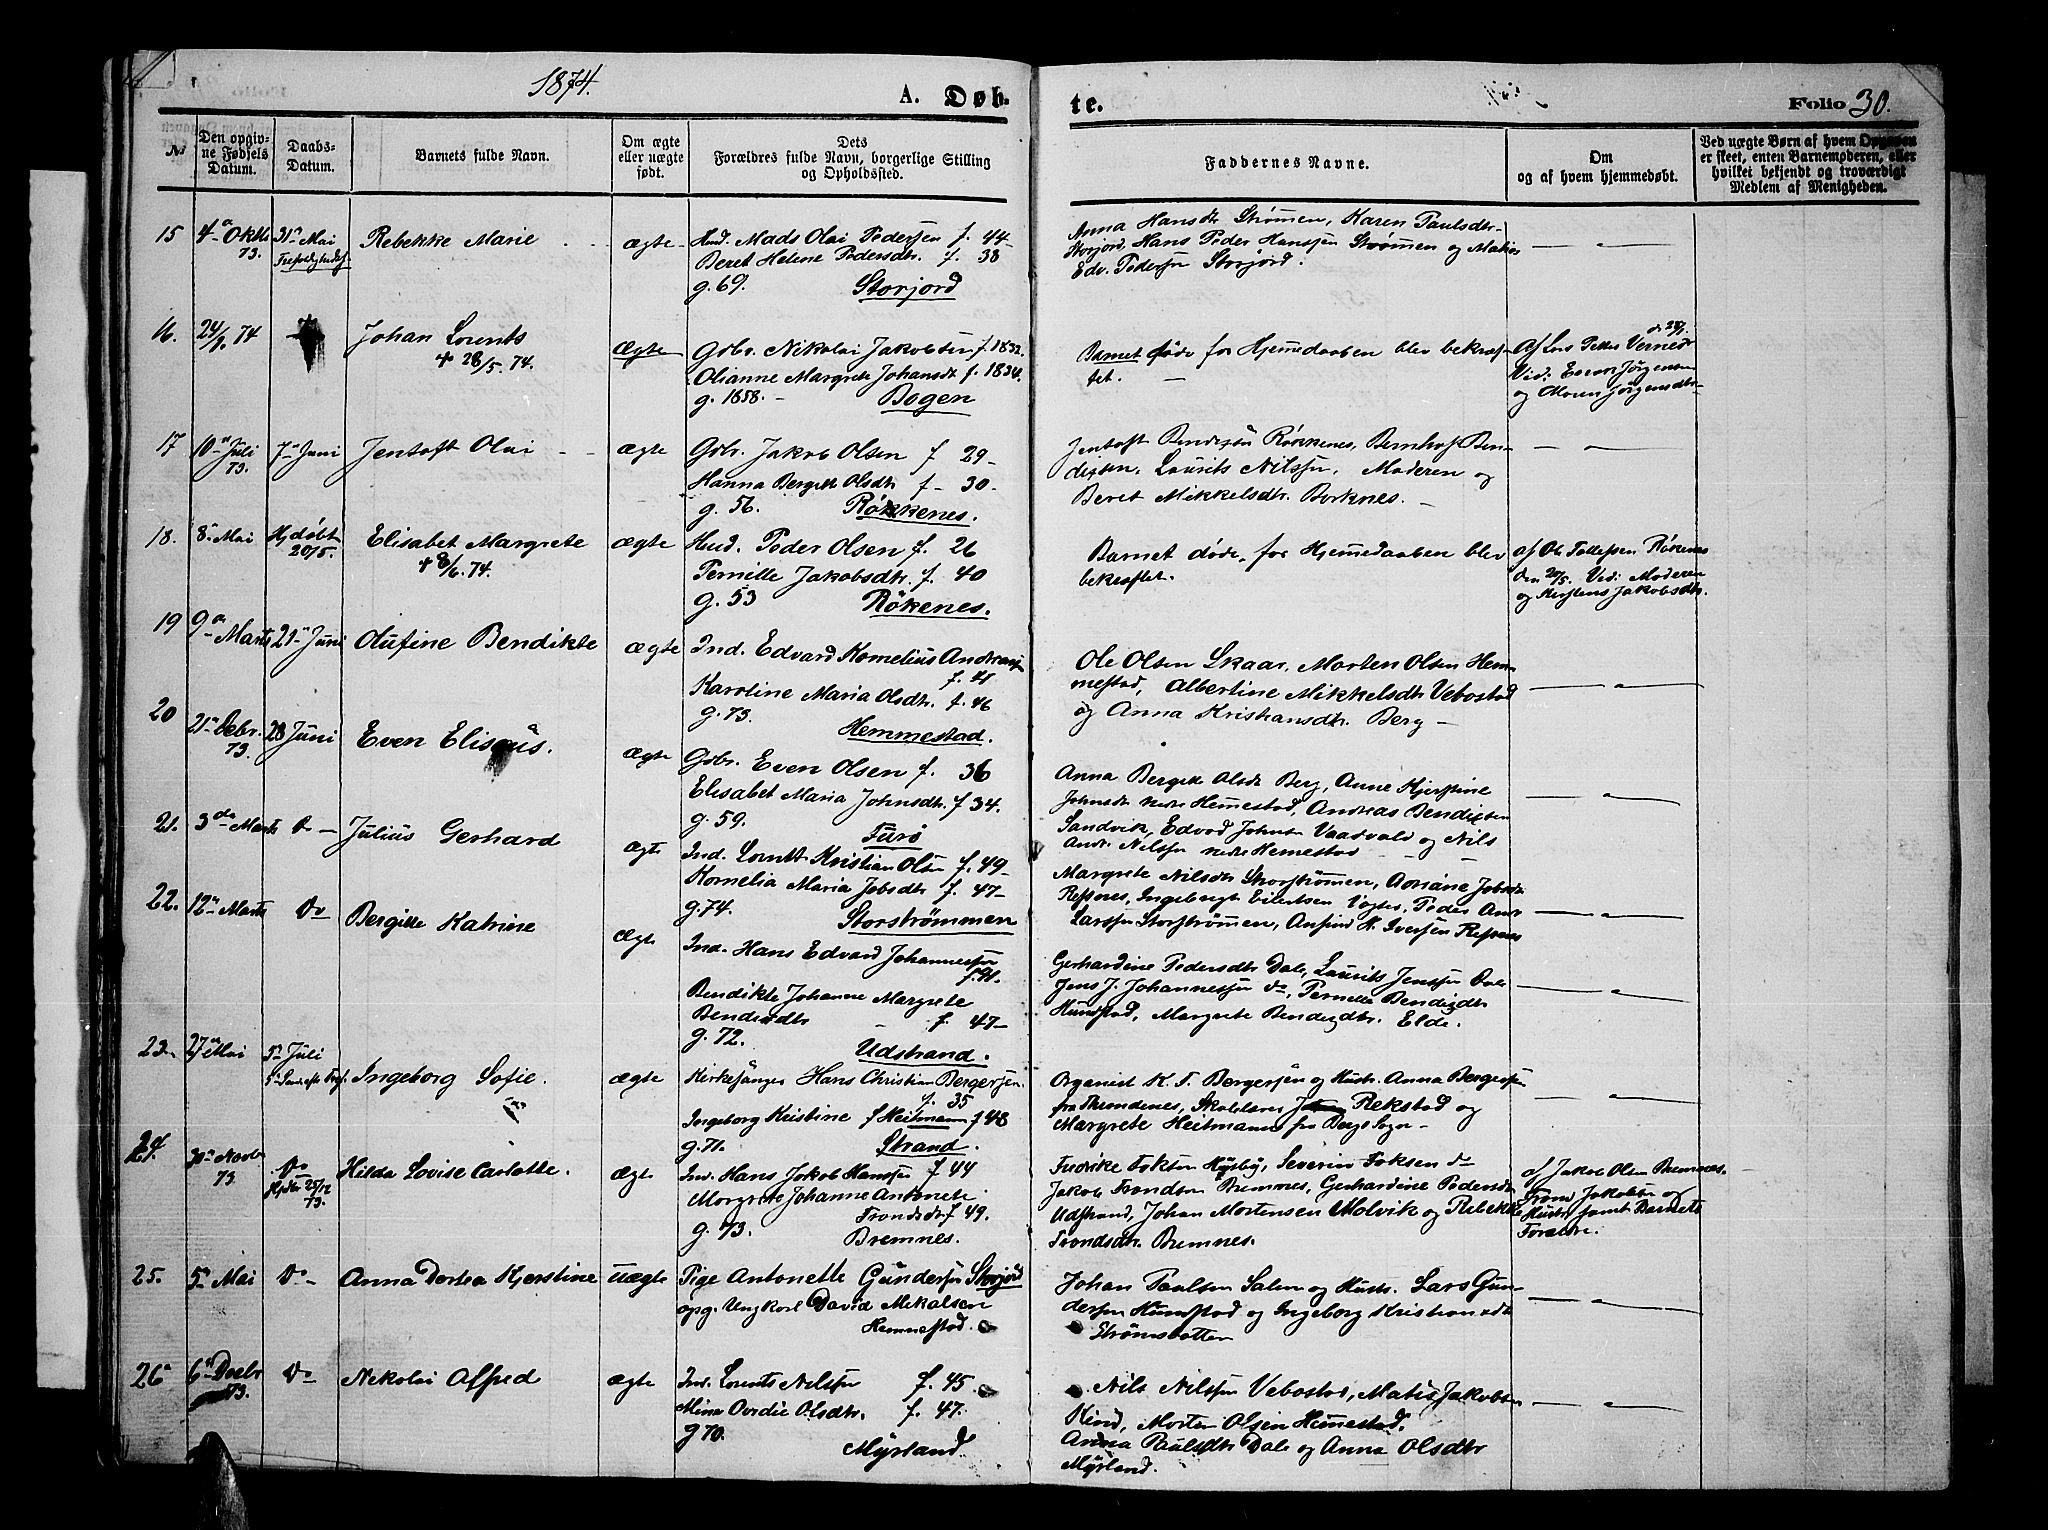 1874.
A. Døb-
te.
Folio 30.
№
Den opgiv-
ne Fødsels
Datum.
Daabs-
Datum.
Barnets fulde Navn.
Om ægte
eller uægte
født.
Dets
Forældres fulde Navn, borgerlige Stilling
og Opholdssted.
Faddernes Navne.
Om
og af hvem hjemmedøbt.
Ved uægte Børn af hvem Opgaven
er skeet, enten Barnemøderen, eller
hvilket bekjendt og troværdigt
Medlem af Menigheden.
15 4 Oktb 31 Mai Rebekke Marie ægte Mads Olai Pedersen f. 44
73.
Beret Helene Pedersdtr. f. 38
g. 69. Storjord
Anna Hansdtr Strømen, Karen Paulsdtr.
Storjord, Hans Peder Hanssen Strømen og
Edv. Pedersen Storjord.
16. 24/1. 74 Johan Lorents ægte Gbr. Nikolai Jakobsen f. 1832.
† 28/5. 74.
Olianne Margrete Johansdtr f. 1834.
g. 1858. Bogen
Barnet døde før Hjemmedaaben blev bekræf-
tet.
af Lars Peder
Vid:
og
17 10 Juli 7 Juni Jentoft Olai ægte Gbr. Jakob Olsen f 29
73.
Hanna Bergitte Olsdtr f 30.
g. 56. Røkkenes.
Jentoft Bendixen Røkkenes, Bernhof Ben-
dixen. Laurits Nilssen. Moderen og
Beret Mikkelsdtr. Borknes.
18. 8 Mai Hjdøbt Elisabet Margrete ægte Peder Olsen f. 26
20/5. † 8/6. 74.
Pernille Jakobsdtr. f. 40
g. 53 Røkenes.
Barnet døde, før Hjemmedaaben blev
bekræftet.
af Ole Tollefsen Røkenes
den 20/5. Vid: Moderen
og Jakobsdtr.
19 9 Marts 21 Juni Olufine Bendikte ægte Ind. Edvard Kornelius
f. 48
Karoline Maria Olsdtr. f. 46
g. 73. Hemmestad.
Ole Olsen Skaar, Morten Olsen Hem-
mestad, Albertine Mikkelsdtr Vebostad
og Anna Kristiansdtr. Berg
20 21 Debr. 28 Juni Even Eliseus. ægte Gbr. Even Olsen f. 36
73.
Elisabet Maria Johnsdtr. f 34.
g. 59. Furø
Anna Bergitte Olsdtr Berg, Anne Kjerstine
Johnsdtr nedre Hemestad, Andreas Bendixen
Sandvik, Edvard Johnsen Vaadvald og Nils
Andr. Nilssen nedre Hemestad
21. 3 Marts Do Julius Gerhard ægte Ind. Kristian Olsen f. 49
Kornelia Maria Jobsdtr f. 47
g. 74. Storstrømmen
Margrete Nilsdtr Storstrømmen, Jobsdtr
Refsnes, Ingebrigt Eilertsen Vogter, Peder Andr
Larssen Storstrømmen, Iversen Refsnes
22. 12 Marts Do Bergitte Katrine ægte Ind. Hans Edvard Johannessen
f. 41.
Bendikte Johanne Margrete
Bendixdtr f. 47
g. 72. Udstrand.
Gerhardine Pedersdtr Dale, Laurits Jenssen Dale
Jens J. Johannessen do, Pernelle Bendixdtr
Hundstad, Margrete Bendixdtr. Elde.
23. 27 Mai 5 Juli Ingeborg Sofie. ægte Kirkesanger Hans Christian Bergersen
f. 35
Ingeborg Kristine f Heitmann f 48
g. 71. Strand.
Organist K. T. Bergersen og Hustr. Anna Bergersen
fra Throndenes, Skolelærer Rekstad og
Margrete Heitmann fra Bergs Sogn
24. 30 Novbr Do Hilda Lovise Carlotte. ægte Ind. Hans Jakob Hanssen f 44
73. Hjdbt 25/12
73.
Margrete Johanne Antonete
Trondsdtr f 49.
g. 73. Bremnes.
Fredrike Foksen Hysby, Severin Foksen do
Jakob Trondsen Bremnes, Gerhardine Pedersdtr
Udstrand, Johan Mortensen Molvik og Rebekke
Trondsdtr. Bremnes.
af Jakob Olsen Bremnes.
Trond Jakobsen og
Hustr samt Barnets
Forældre.
25. 5 Mai Do Anna Dortea Kjerstine uægte Pige Antonette Gundersen Storjord
opg. Ungkarl David Mekalsen
Hemmestad.
Johan Paulsen Salen og Hustr. Lars Gun-
dersen Hundstad og Ingeborg Kristiansdtr
Strømsbotten
26 6 Decbr Do Nikolai Alfred ægte Ind. Lorents Nilssen f. 45
73.
Mina Ovidie Olsdtr. f. 47.
g 70. Myrland
Nils Nilssen Vebostad, Matis Jakobsen
Kind, Morten Olsen Hemestad.
Anna Paulsdtr Dale og Anna Olsdtr
Myrland.